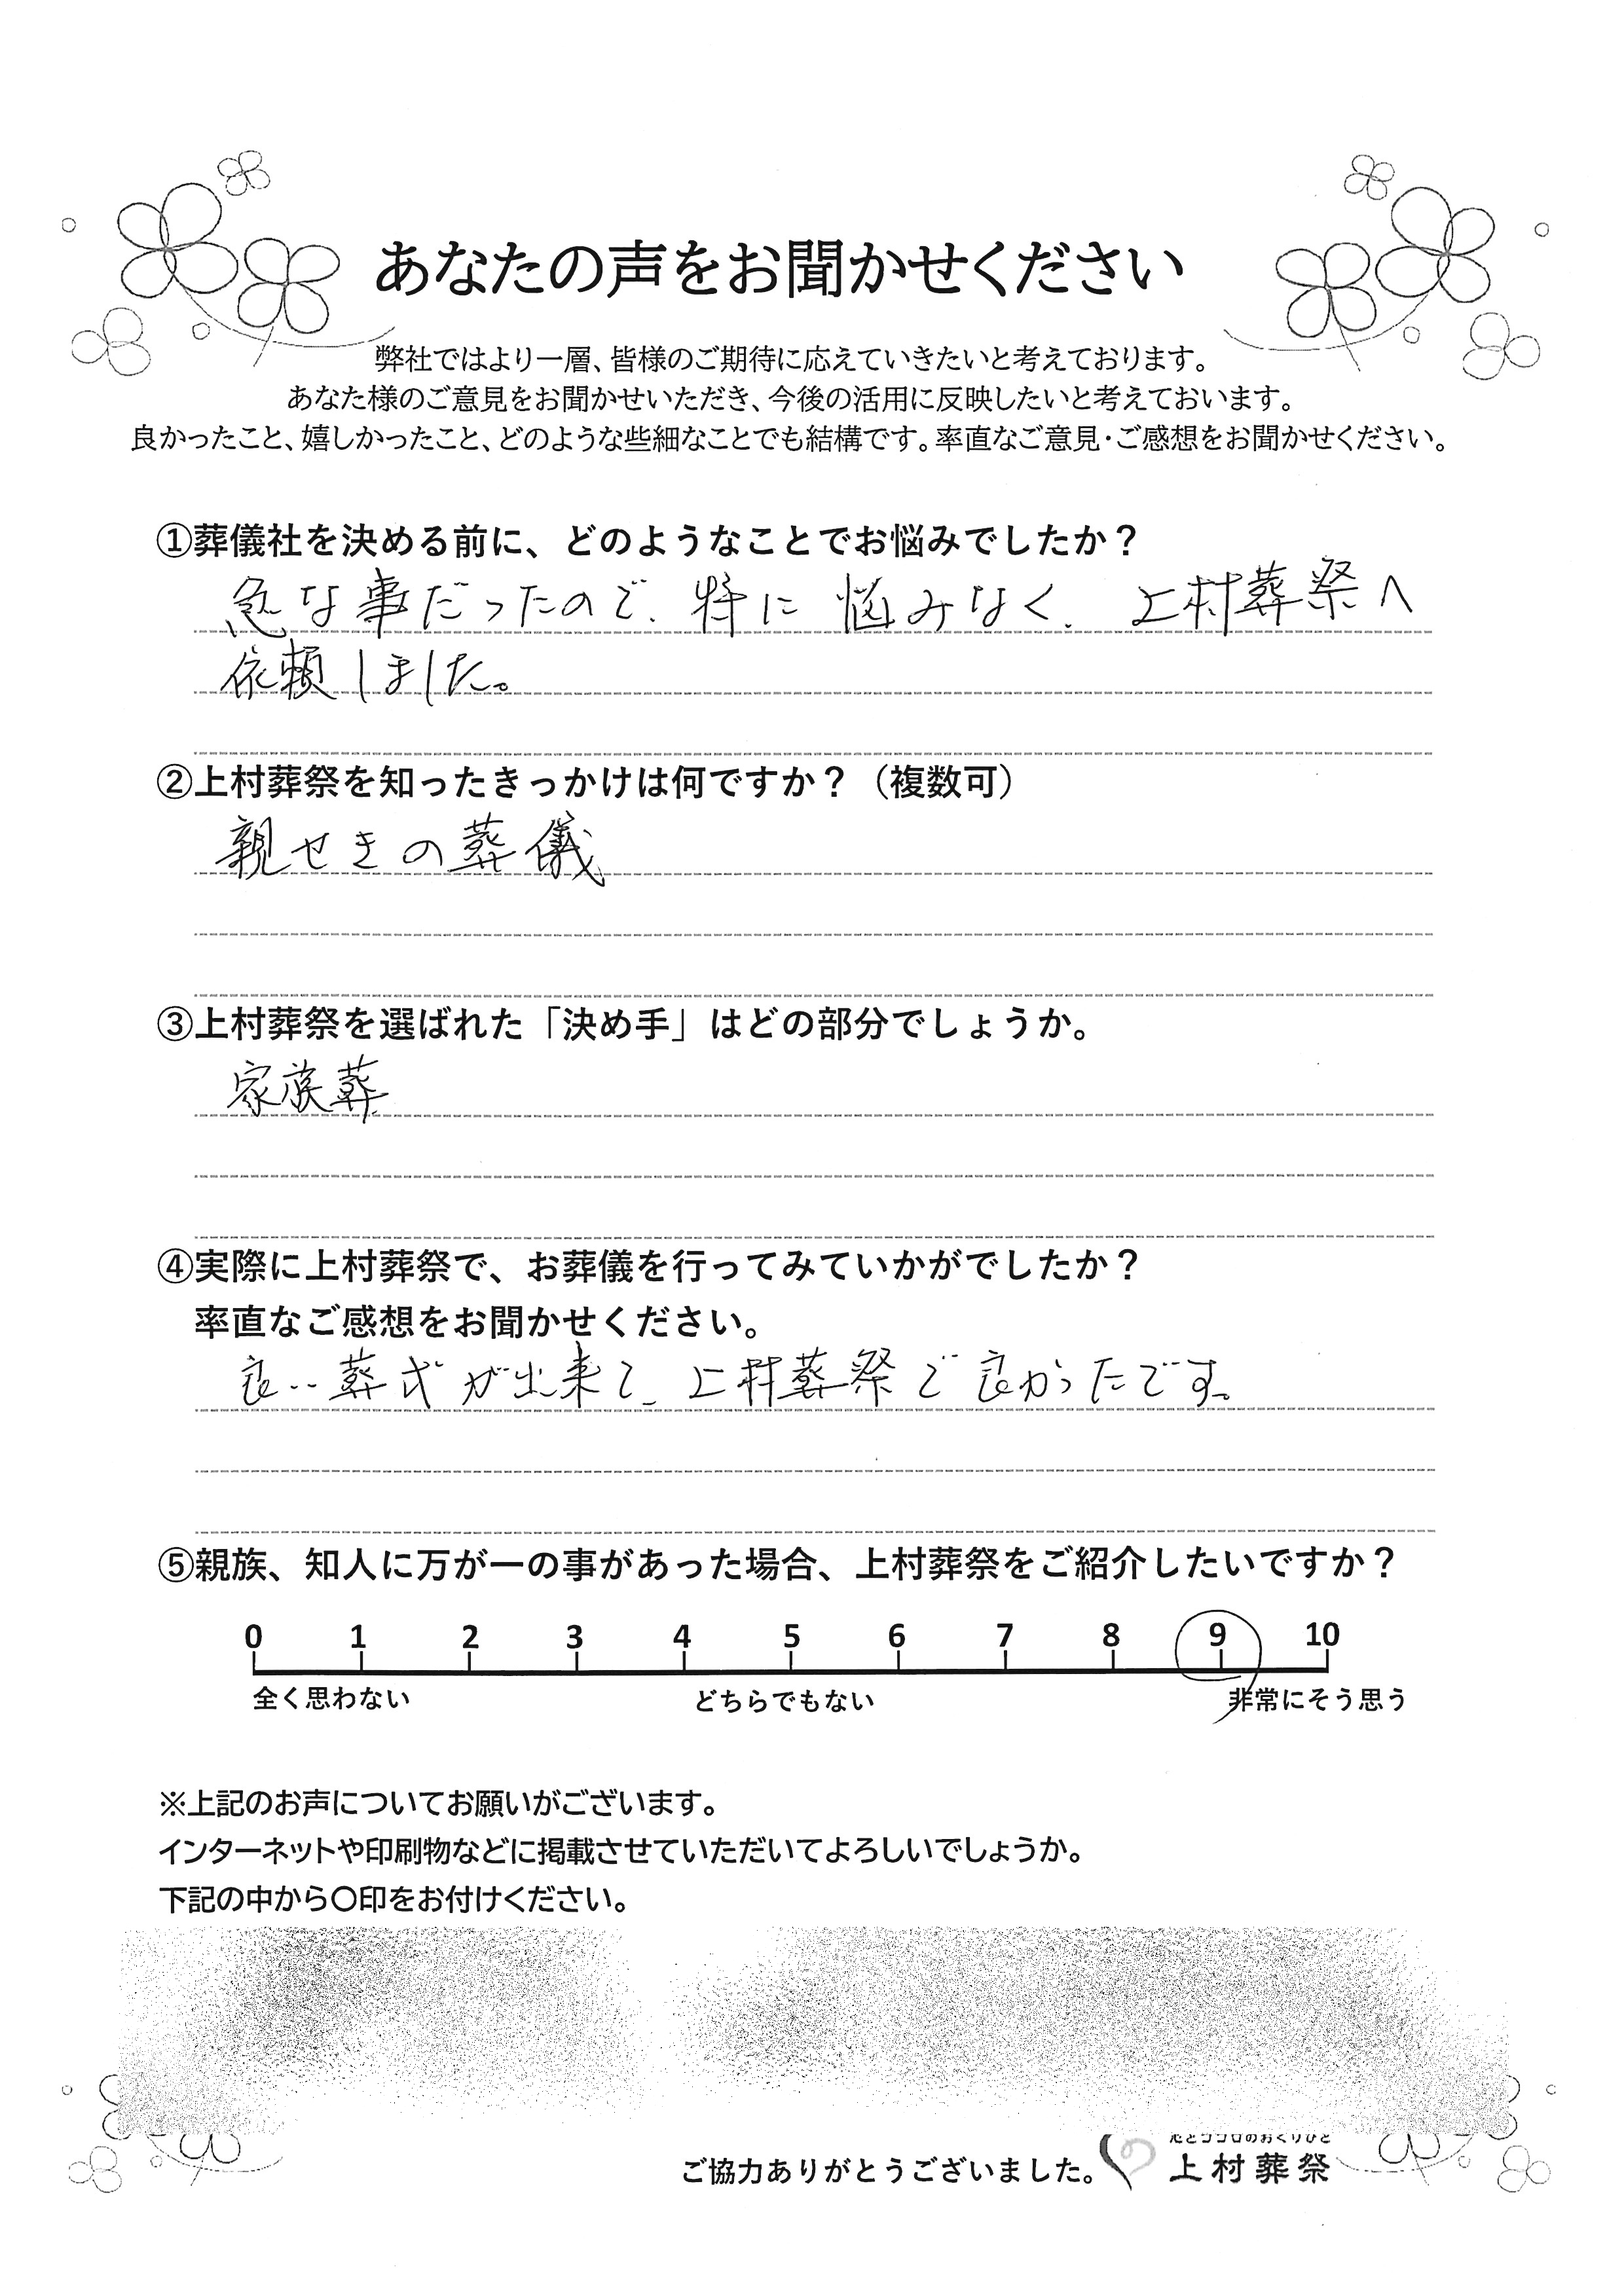 あなたの声をお聞かせください
弊社ではより一層、皆様のご期待に応えていきたいと考えております。
あなた様のご意見をお聞かせいただき、今後の活用に反映したいと考えておいます。
良かったこと、嬉しかったこと、どのような些細なことでも結構です。率直なご意見・ご感想をお聞かせください。
①葬儀社を決める前に、どのようなことでお悩みでしたか？
急な事だったので、特に悩みなく、上村葬祭へ
依頼しました。
②上村葬祭を知ったきっかけは何ですか？（複数可）
親せきの葬儀
③上村葬祭を選ばれた「決め手」はどの部分でしょうか。
家族葬
④実際に上村葬祭で、お葬儀を行ってみていかがでしたか？
率直なご感想をお聞かせください。
良い葬式が出来て、上村葬祭で良かったです。
⑤親族、知人に万が一の事があった場合、上村葬祭をご紹介したいですか？
0 1 2 3 4 5 6 7 8 9 10
全く思わない どちらでもない 非常にそう思う
※上記のお声についてお願いがございます。
インターネットや印刷物などに掲載させていただいてよろしいでしょうか。
下記の中から〇印をお付けください。
ご協力ありがとうございました。 上村葬祭